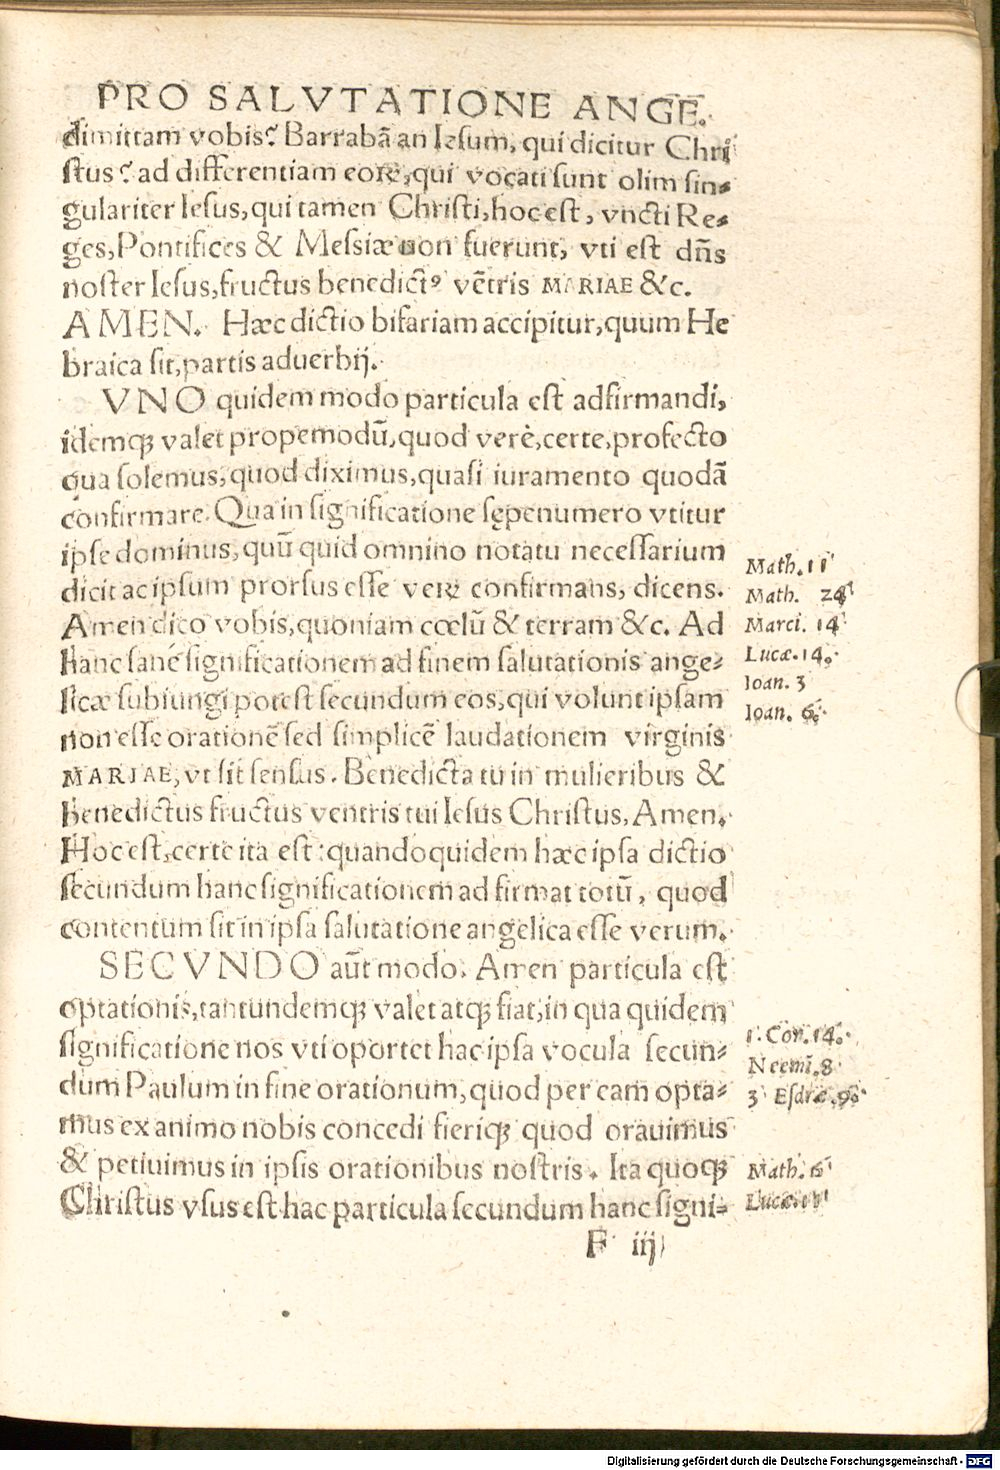 PRO SALVTATIONE ANGE.
dimittam vobis? Barrabā an Iesum, qui dicitur Chri
stus? ad differentiam eorū, qui vocati sunt olim sin-
gulariter Iesus, qui tamen Christi, hoc est, vncti Re-
ges, Pontifices & Messiæ non fuerunt, vti est dn̄s
noster Iesus, fructus benedictꝰ vētris MARIAE &c.
AMEN. Hæc dictio bifariam accipitur, quum He
braica sit, partis aduerbij.
VNO quidem modo particula est adfirmandi,
idemqꝫ valet propemodū, quod verè, certe, profecto
qua solemus, quod diximus, quasi iuramento quodā
confirmare. Qua in significatione sępenumero vtitur
ipse dominus, quū quid omnino notatu necessarium
dicit ac ipsum prorsus esse vere confirmans, dicens.
Amen dico vobis, quoniam cœlū & terram &c. Ad
hanc sanè significationem ad finem salutationis ange-
licæ subiungi potest secundum eos, qui volunt ipsam
non esse orationē sed simplicē laudationem virginis
MARIAE, vt sit sensus. Benedicta tu in mulieribus &
benedictus fructus ventris tui Iesus Christus, Amen.
Hoc est, certe ita est: quandoquidem hæc ipsa dictio
secundum hanc significationem ad firmat totū, quod
contentum sit in ipsa salutatione angelica esse verum.
SECVNDO aūt modo. Amen particula est
optationis, tantundemqꝫ valet atqꝫ fiat, in qua quidem
significatione nos vti oportet hac ipsa vocula secun-
dum Paulum in fine orationum, quod per eam opta-
mus ex animo nobis concedi fieriqꝫ quod orauimus
& petiuimus in ipsis orationibus nostris. Ita quoqꝫ
Christus vsus est hac particula secundum hanc signi-
F iij
Math. 11
Math. 24
Marci. 14
Lucæ. 14.
Ioan. 3
Ioan. 6.
1. Cor. 14.
Neemi. 8
3 Esdræ. 9.
Math. 6
Lucæ. 11
Digitalisierung gefördert durch die Deutsche Forschungsgemeinschaft - DFG